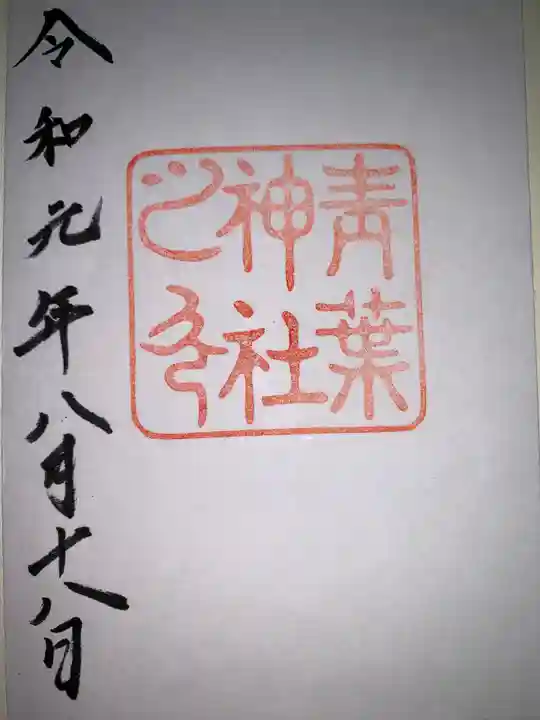 青葉
神社
之印
令和元年八月十八日